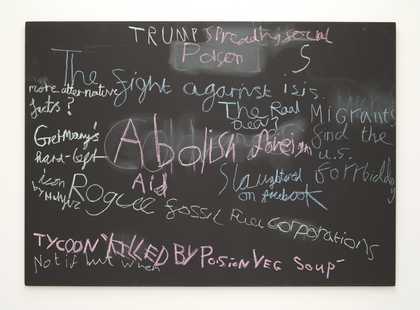 TRUMP Spreading social
Poison
S
The fight against isis.
more alternative
facts?
The Real
Deal?
MIGRANTS
find the
U.S.
Forbiddng
Germany's
hard-left
icon
Abolish Foreign
Aid
Slaughtered
on facebook
Rogue fossil Fuel Corporations
TYCOON "KILLED BY POISION VEG SOUP"
Not if but when